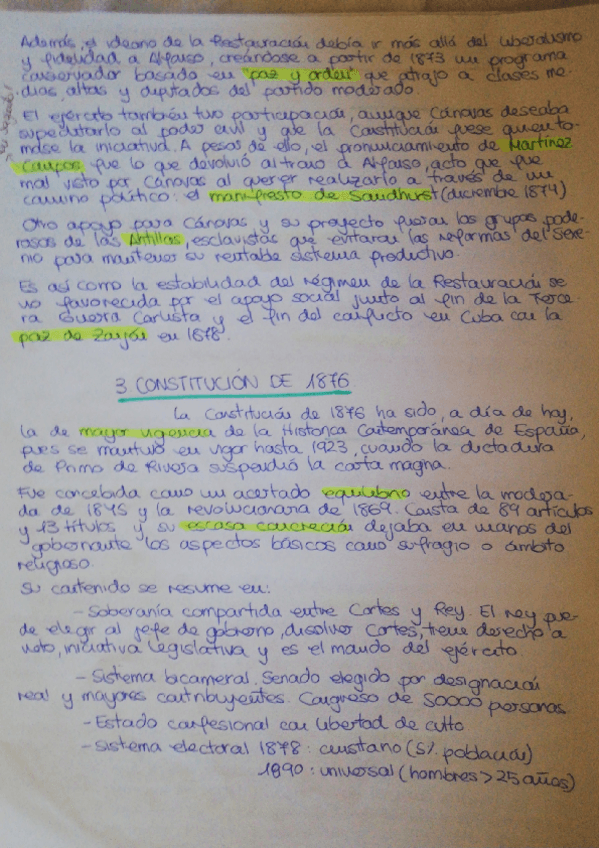 Además, el ideario de la Restauración debía ir más allá del liberalismo
y fidelidad a Alfonso, creándose a partir de 1873 un programa
conservador basado en "paz y orden" que atrajo a clases me-
dias, altas y diputados del partido moderado.
El ejército también tuvo participación, aunque Cánovas deseaba
supeditarlo al poder civil y que la Constitución fuese quien to-
mase la iniciativa. A pesar de ello, el pronunciamiento de Martínez
Campos fue lo que devolvió al trono a Alfonso, acto que fue
mal visto por Cánovas al querer realizarlo a través de un
camino político: el manifiesto de Sandhurst (diciembre 1874)
Otro apoyo para Cánovas y su proyecto fueron los grupos pode-
rosos de las Antillas, esclavistas que evitaron las reformas del Sexe-
nio para mantener su rentable sistema productivo.
Es así como la estabilidad del régimen de la Restauración se
vio favorecida por el apoyo social junto al fin de la Terce-
ra Guerra Carlista y el fin del conflicto en Cuba con la
paz de Zanjón en 1878.
3 CONSTITUCIÓN DE 1876
La Constitución de 1876 ha sido, a día de hoy,
la de mayor vigencia de la Historia Contemporánea de España,
pues se mantuvo en vigor hasta 1923, cuando la dictadura
de Primo de Rivera suspendió la carta magna.
Fue concebida como un acertado equilibrio entre la modera-
da de 1845 y la revolucionaria de 1869. Consta de 89 artículos
y 13 títulos y su escasa concreción dejaba en manos del
gobernante los aspectos básicos como sufragio o ámbito
religioso.
Su contenido se resume en:
- Soberanía compartida entre Cortes y Rey. El rey pue-
de elegir al jefe de gobierno, disolver Cortes, tiene derecho a
veto, iniciativa legislativa y es el mando del ejército.
- Sistema bicameral. Senado elegido por designación
real y mayores contribuyentes. Congreso de 50000 personas.
- Estado confesional con libertad de culto
- Sistema electoral 1878: censitario (5% población)
1890: universal (hombres > 25 años)